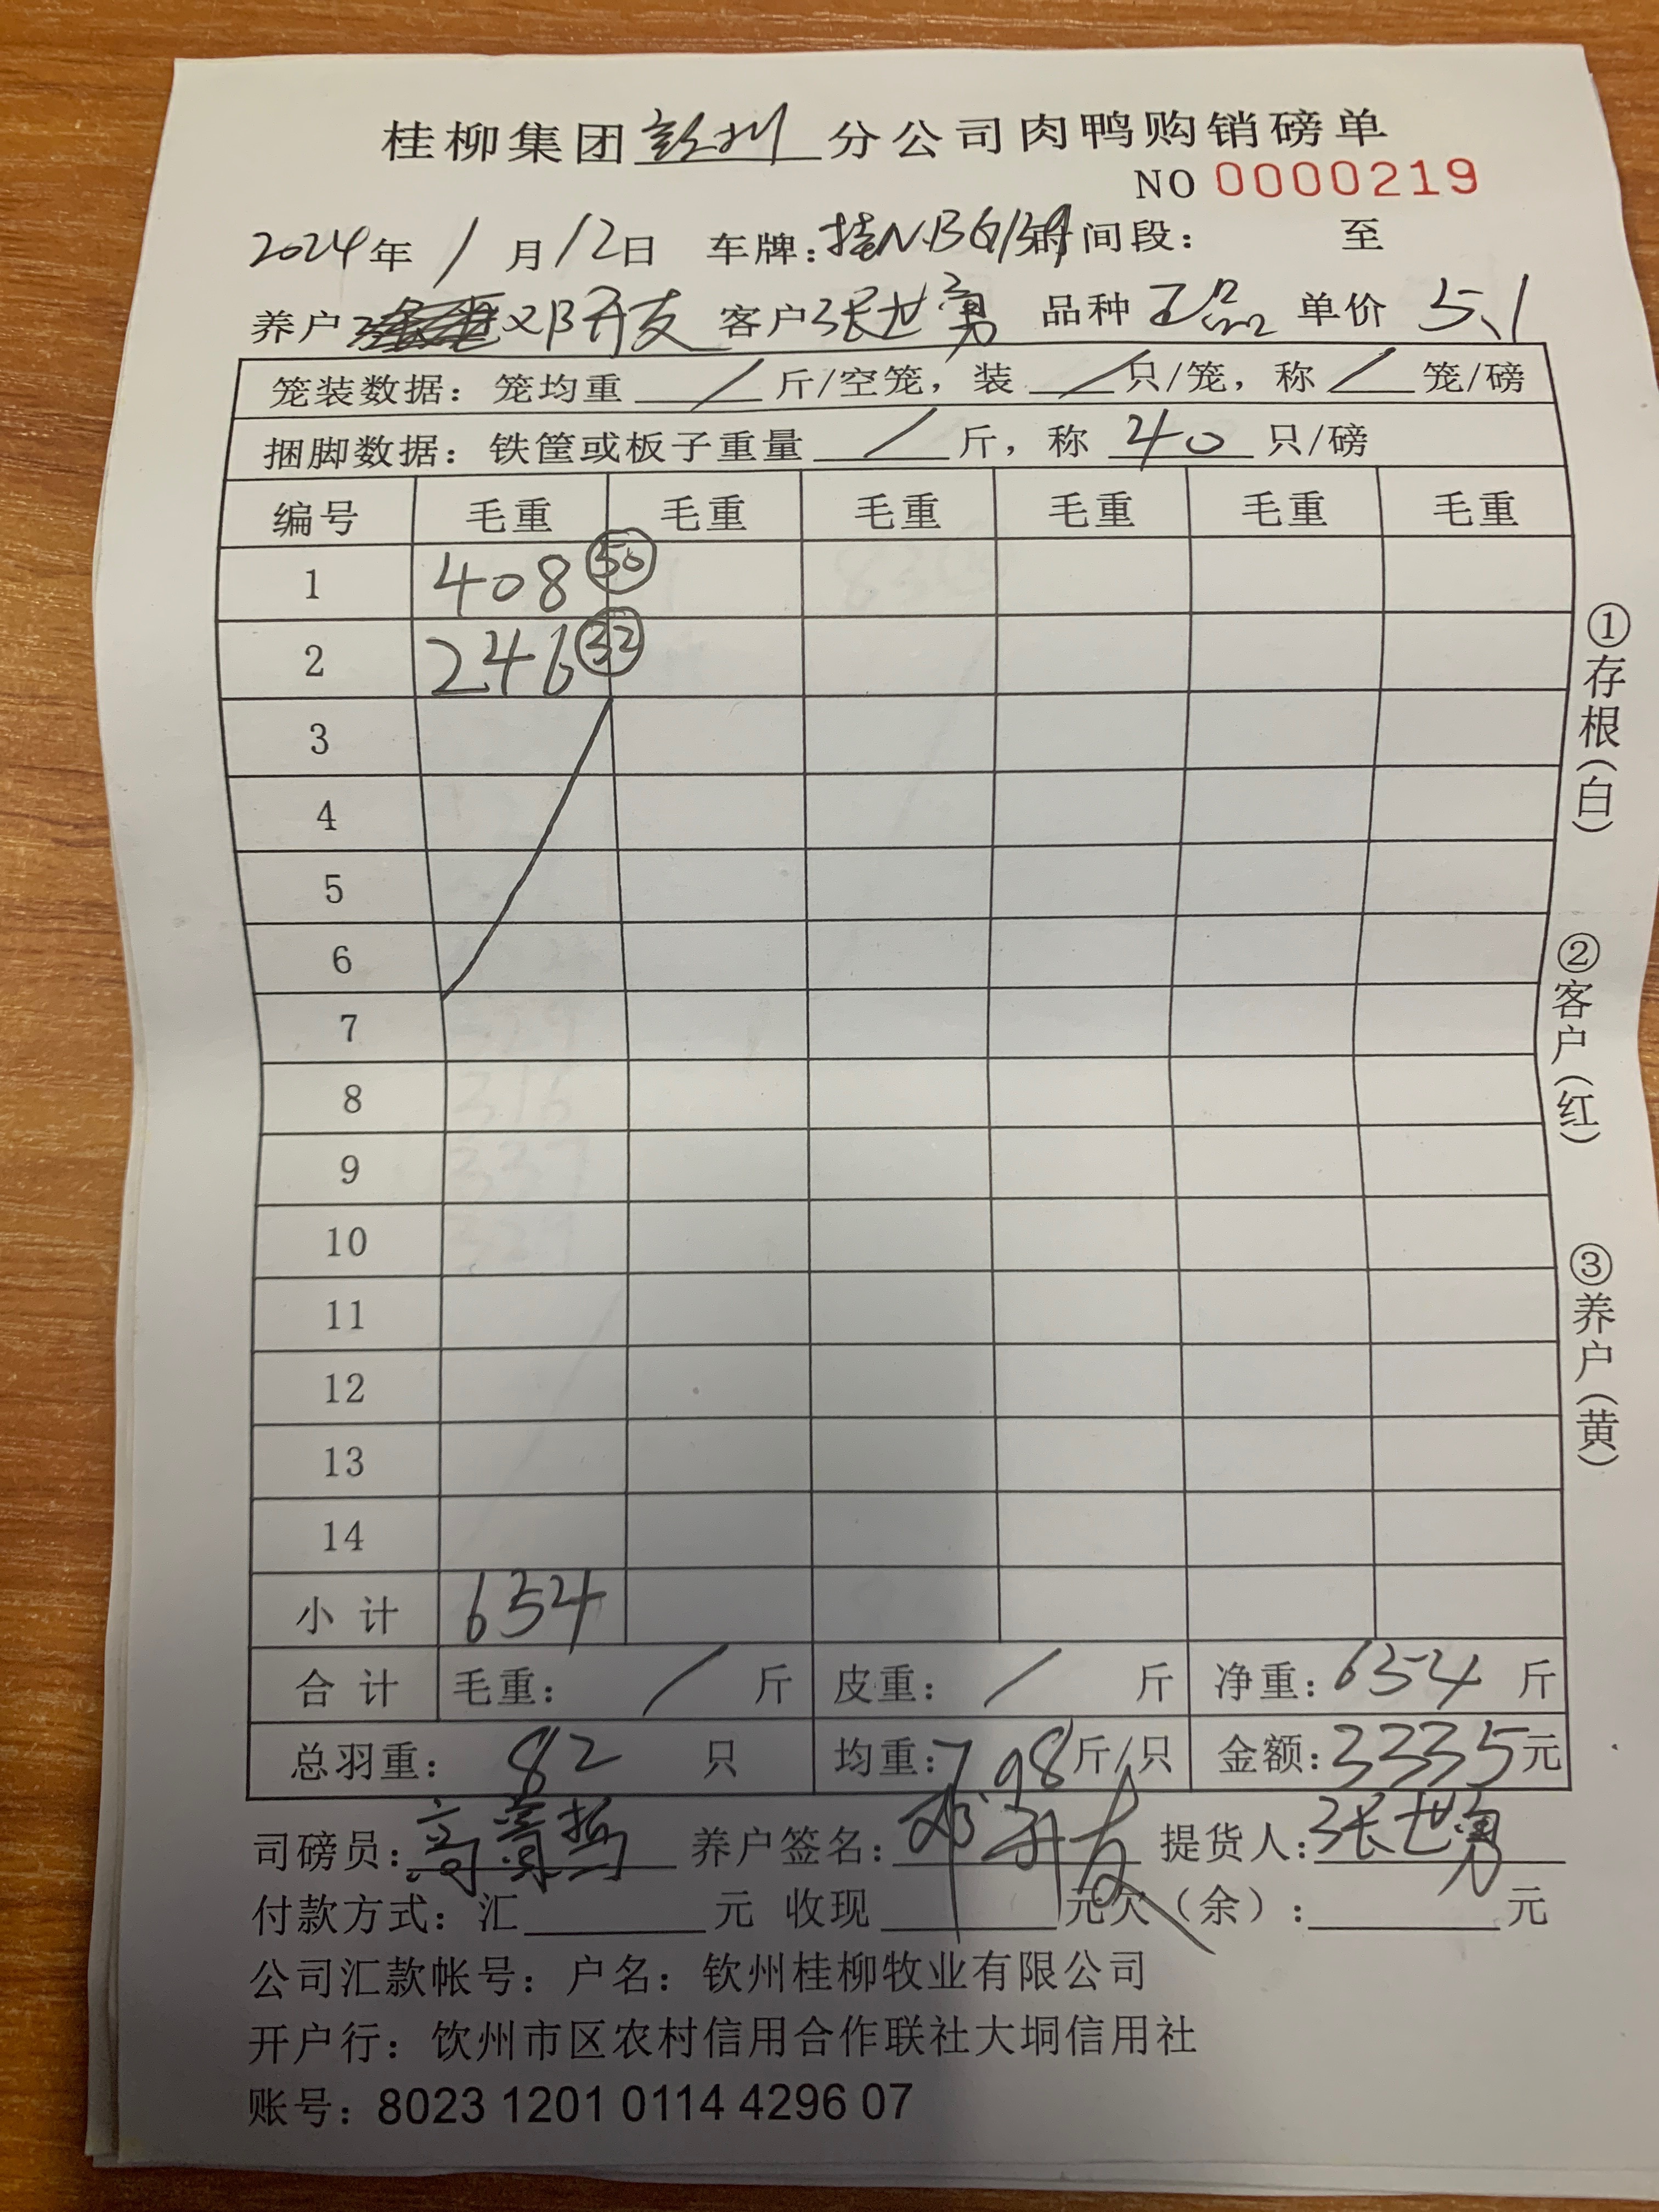 桂柳集团彭州分公司肉鸭购销磅单
NO 0000219
2024年1月12日 车牌:桂N·B 时间段: 至
养户 邓开友 客户张世勇 品种正品 单价5.1
笼装数据:笼均重 / 斤/空笼,装 / 只/笼,称 / 笼/磅
捆脚数据:铁筐或板子重量 / 斤,称 40 只/磅
编号 毛重 毛重 毛重 毛重 毛重 毛重
1 408 50
2 246 32
3
4
5
6
7
8
9
10
11
12
13
14
小计 654
合计 毛重: / 斤 皮重: / 斤 净重:654斤
总羽重:82只 均重:7.98斤/只 金额:3335元
司磅员: 养户签名:邓开友 提货人:张世勇
付款方式:汇 元 收现 元欠(余): 元
公司汇款帐号:户名:钦州桂柳牧业有限公司
开户行:饮州市区农村信用合作联社大垌信用社
账号:8023 1201 0114 4296 07
①存根(白)
②客户(红)
③养户(黄)